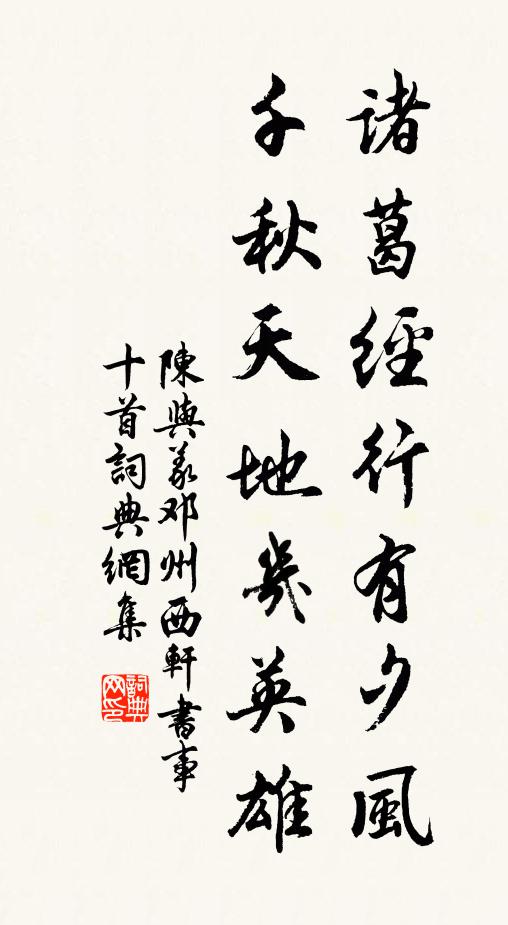 諸葛經行有夕風
千秋天地幾英雄
陳與義邓州西軒書事
十首詞典網集
詞典
网印